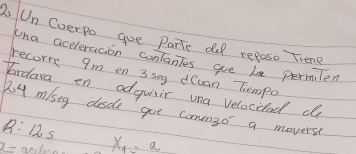 2. Un Cuerpo que Parte del reposo Tiene
una aceleración contantes que le permiten
recorre 9m en 3 seg ¿Cuan Tiempo
Tardara en adquirir una velocidad de
24 m/seg desde que comenzó a moverse
R: 12 s
X1 = a